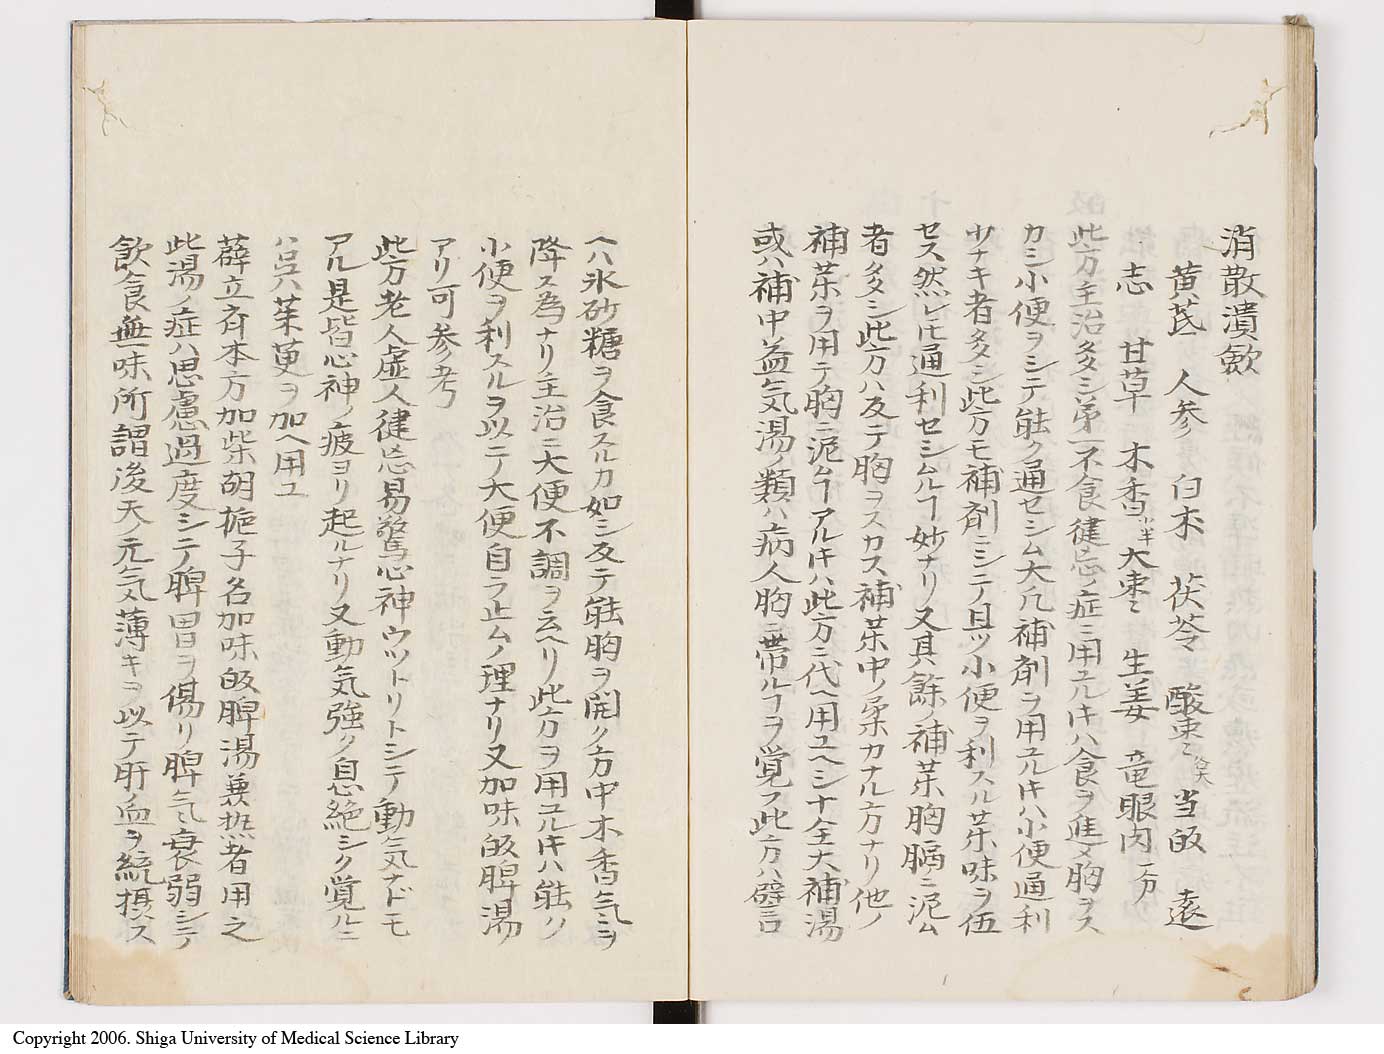 消散潰歛
黄芪 人参 白朮 茯苓 酸棗仁 各大 当皈 遠
志 甘草 木香 小半 大棗仁 生姜 竜眼肉 一分
此方主治多シ第一不食健忘ノ症ニ用ユル𪜈ハ食ヲ進メ胸ヲス
カシ小便ヲシテ能ク通セシム大凢補剤ヲ用ユル𪜈ハ小便通利
少ナキ者多シ此方モ補剤ニシテ且ツ小便ヲ利スル茱味ヲ伍
セス然レ𪜈通利セシムルヿ妙ナリ又其餘ノ補茱胸膈ニ泥ム
者多シ此方ハ反テ胸ヲスカス補茱中ノ柔カナル方ナリ他ノ
補茱ヲ用テ胸ニ泥ムヿアル𪜈ハ此方ニ代ヘ用ユヘシ十全大補湯
或ハ補中益気湯ノ類ハ病人胸ニ滞ルヿヲ覚フ此方ハ譬言
ヘハ氷砂糖ヲ食スルカ如シ反テ能胸ヲ開ク方中木香気ヲ
降ス為ナリ主治ニ大便不調ヲ云ヘリ此方ヲ用ユル𪜈ハ能ク
小便ヲ利スルヲ以ニテ大便自ラ止ムノ理ナリ又加味皈脾湯ノ
アリ可参考
此方老人虚人健忘易驚心神ウツトリトシテ動気ナドモ
アル是皆心神ノ疲ヨリ起ルナリ又動気強ク息絶シク覚ルニ
ハ呉茱萸ヲ加ヘ用ユ
薜立斉本方加柴胡梔子名加味皈脾湯兼熱者用之
此湯ノ症ハ思慮過度シテ脾胃ヲ傷リ脾気衰弱シテ
飲食無味所謂後天ノ元気薄キヲ以テ肝血ヲ統摂ス
Copyright 2006. Shiga University of Medical Science Library